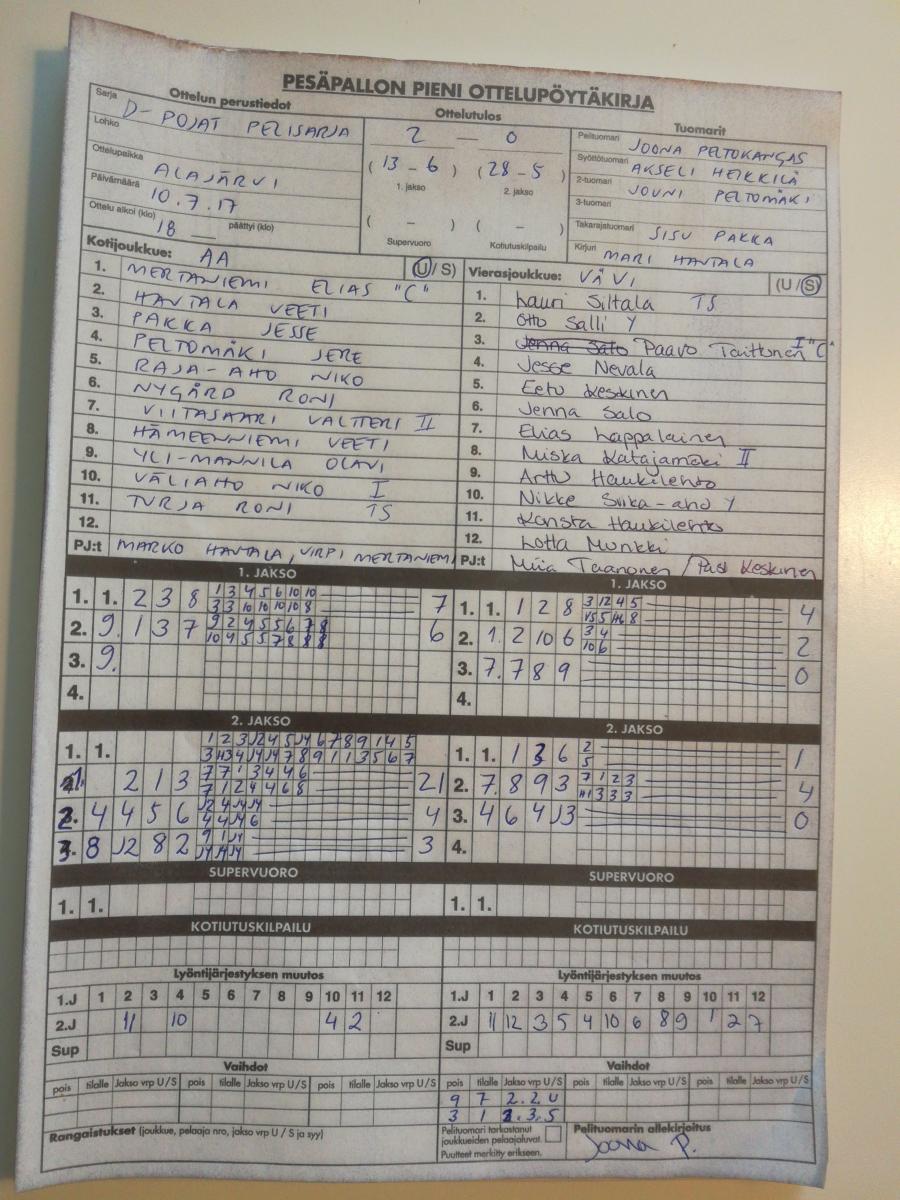 PESÄPALLON PIENI OTTELUPÖYTÄKIRJA
Ottelun perustiedot
Sarja D-POJAT PELISARJA
Lohko
Ottelupaikka ALAJÄRVI
Päivämäärä 10.7.17
Ottelu alkoi (klo) 18 päättyi (klo)
Ottelutulos
2 – 0
(13 – 6) (28 – 5)
1. jakso 2. jakso
( – ) ( – )
Supervuoro Kotiutuskilpailu
Tuomarit
Pelituomari JOONA PELTOKANGAS
Syöttötuomari AKSELI HEIKKILÄ
2-tuomari JOUNI PELTOMÄKI
3-tuomari
Takarajatuomari SISU PAKKA
Kirjuri MARI HAUTALA
Kotijoukkue: AA (U/S)
1. MERTANIEMI ELIAS "C"
2. HAUTALA VEETI
3. PAKKA JESSE
4. PELTOMÄKI JERE
5. RAJA-AHO NIKO
6. NYGÅRD RONI
7. VIITASAARI VALTTERI II
8. HÄMEENNIEMI VEETI
9. YLI-MANNILA OLAVI
10. VÄLIAHO NIKO I
11. TURJA RONI TS
12.
PJ:t MARKO HAUTALA, VIRPI MERTANIEMI
Vierasjoukkue: VÄVI (U/S)
1. Lauri Siltala TS
2. Otto Salli Y
3. Paavo Taittonen I "C"
4. Jesse Nevala
5. Eetu Keskinen
6. Jenna Salo
7. Elias Lappalainen
8. Miska Katajamäki II
9. Arttu Haukilehto
10. Nikke Siika-aho Y
11. Konsta Haukilehto
12. Lotta Munkki
PJ:t Miia Taanonen / Pasi Keskinen
1. JAKSO
1. 1. 2 3 8 1 3 4 5 6 10 10 7
3 3 10 10 10 10 8
2. 9. 1 3 7 9 2 4 5 5 6 7 8 6
10 4 5 5 7 8 8 8
3. 9.
4.
1. JAKSO
1. 1. 1 2 8 3 12 4 5 4
2. 1. 2 10 6 3 4 2
10 6
3. 7. 7 8 9 0
4.
2. JAKSO
1. 1.
2 1 3 7 7 1 3 4 4 6 21
7 1 2 4 4 6 8
4 4 5 6 4
8 J2 8 2 3
2. JAKSO
1. 1. 1 3 6 2 1
5
2. 7. 8 9 3 7 1 2 3 4
3. 4 6 4 J3 0
4.
SUPERVUORO
1. 1.
SUPERVUORO
1. 1.
KOTIUTUSKILPAILU
KOTIUTUSKILPAILU
Lyöntijärjestyksen muutos
1.J 1 2 3 4 5 6 7 8 9 10 11 12
2.J 11 10 4 2
Sup
Lyöntijärjestyksen muutos
1.J 1 2 3 4 5 6 7 8 9 10 11 12
2.J 11 12 3 5 4 10 6 8 9 1 2 7
Sup
Vaihdot
pois tilalle Jakso vrp U/S pois tilalle Jakso vrp U/S pois tilalle Jakso vrp U/S
Vaihdot
pois tilalle Jakso vrp U/S pois tilalle Jakso vrp U/S pois tilalle Jakso vrp U/S
9 7 2.2.U
3 1 2.3.S
Rangaistukset (joukkue, pelaaja nro, jakso vrp U / S ja syy)
Pelituomari tarkastanut
joukkueiden pelaajaluvat.
Puutteet merkitty erikseen.
Pelituomarin allekirjoitus
Joona P.